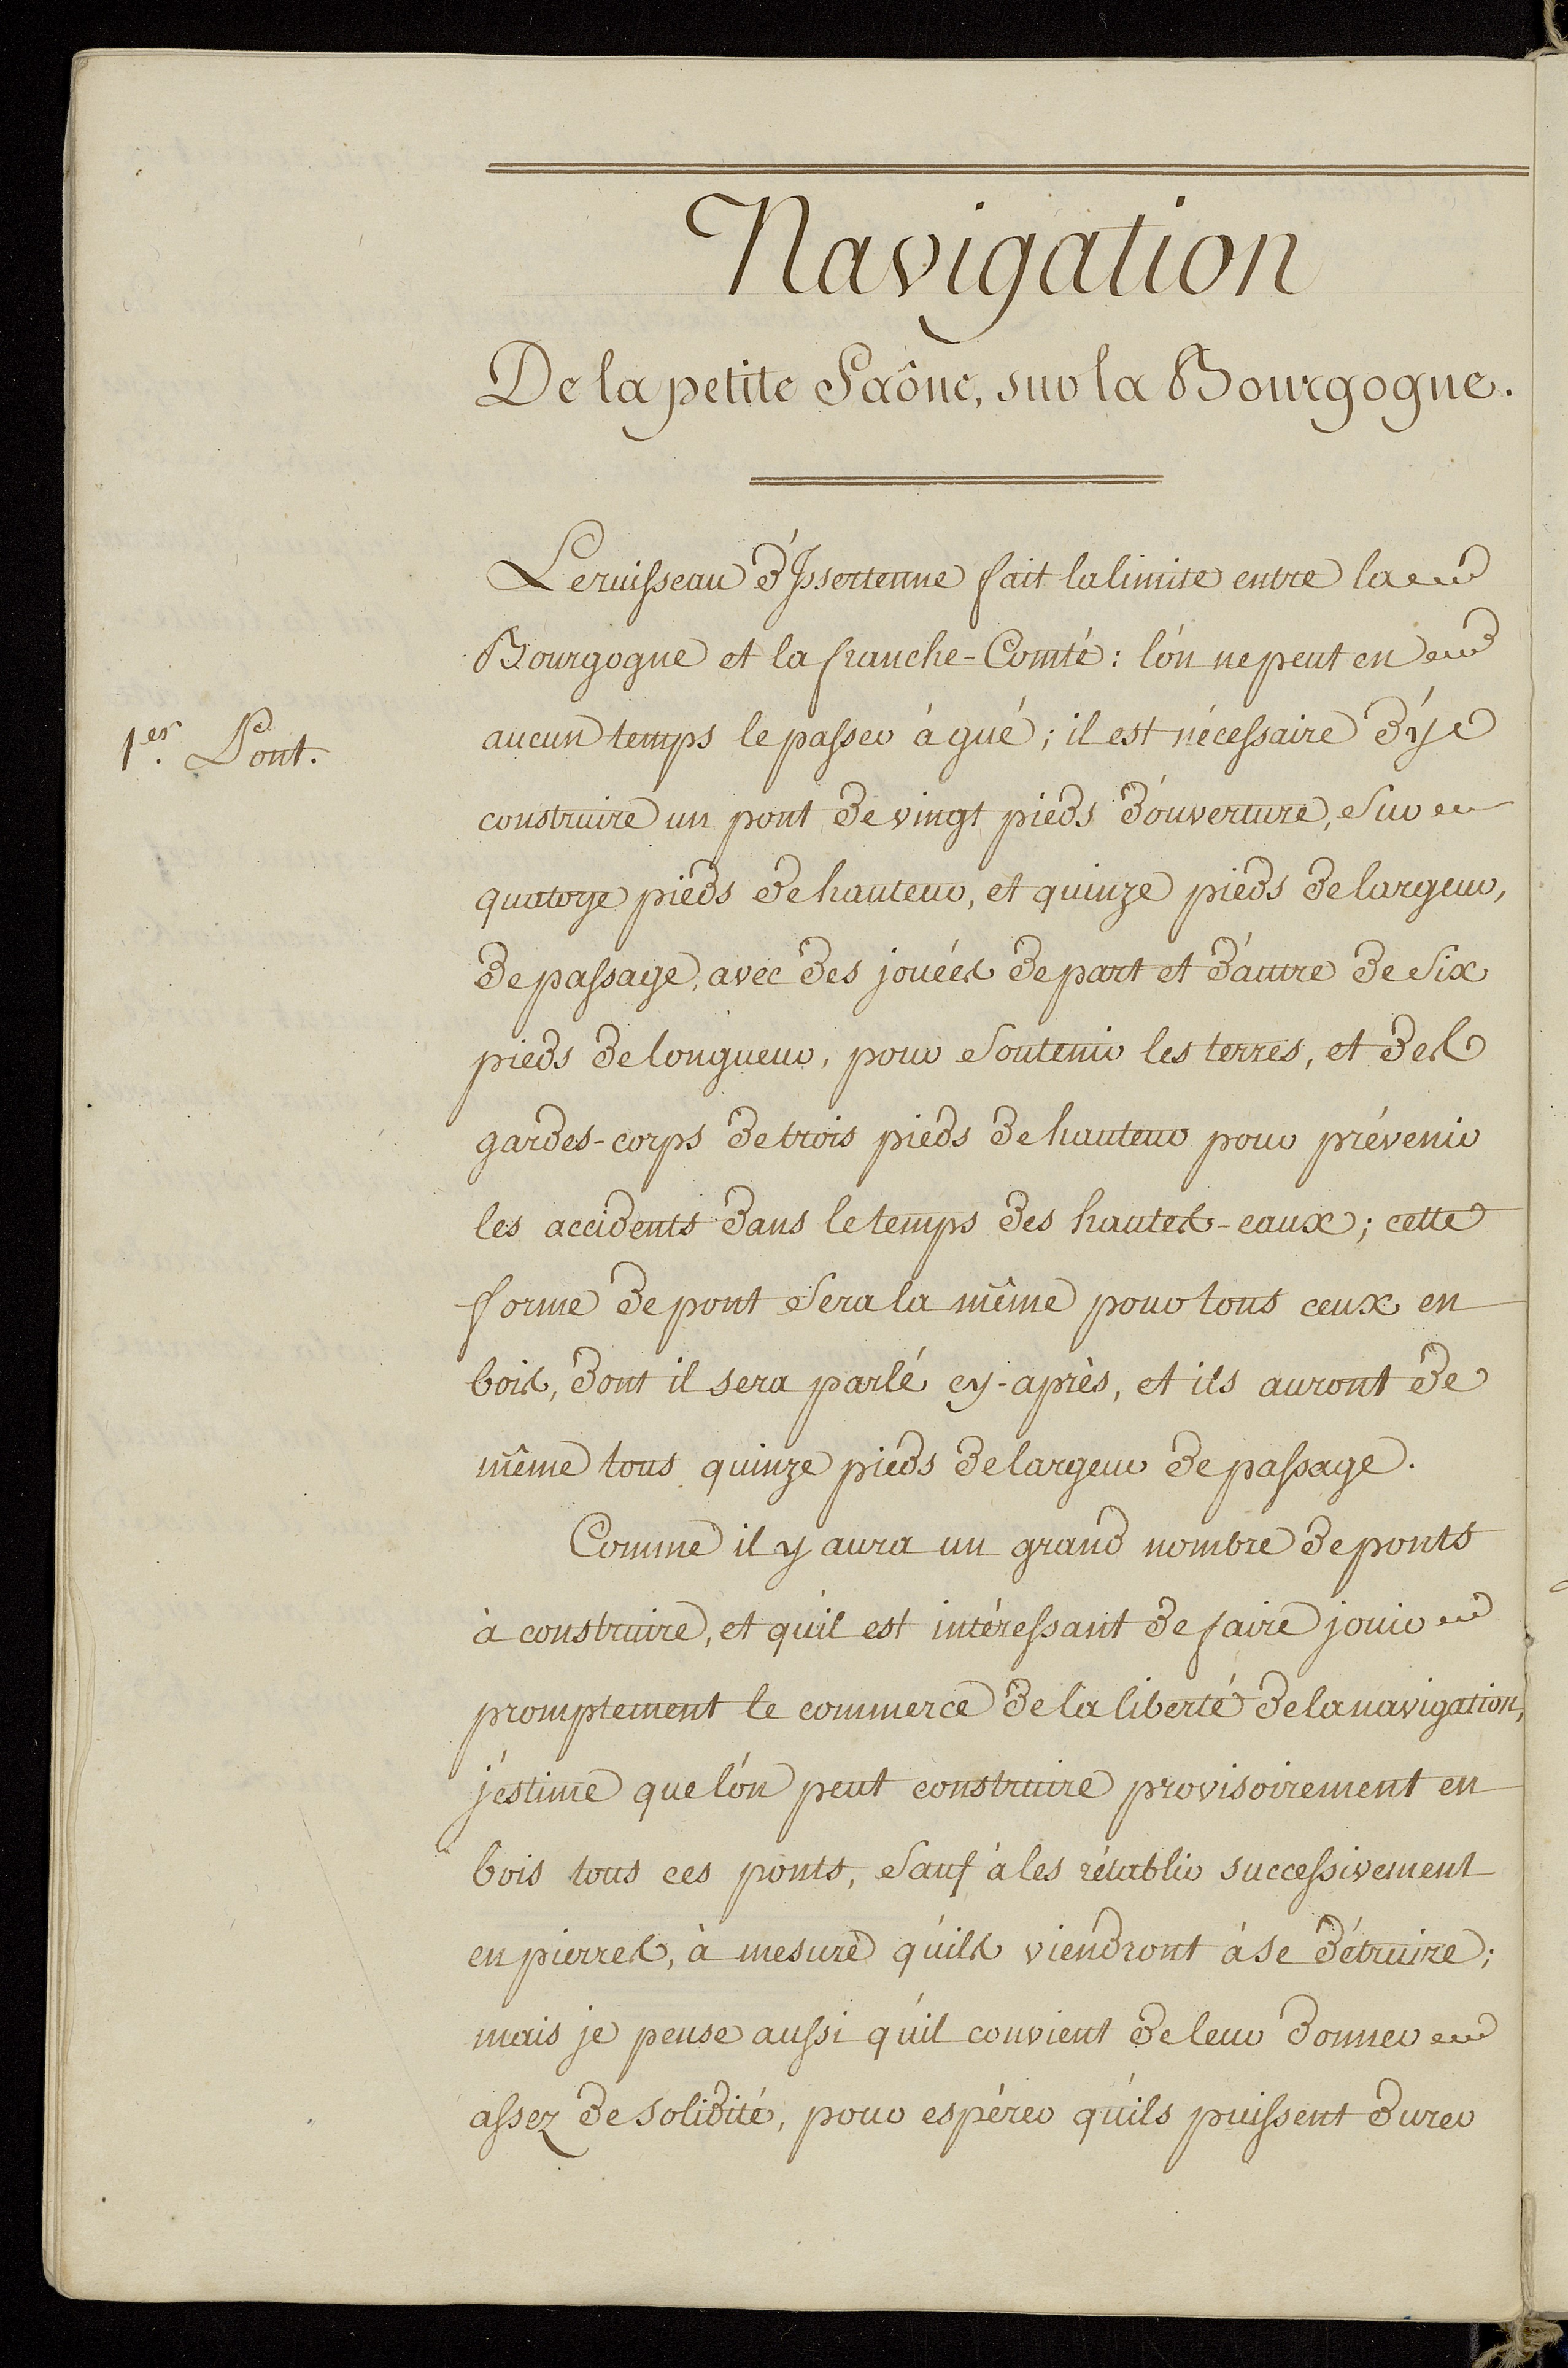 Navigation
De la petite Saône, sur la Bourgogne.
Le ruisseau d'Issertenne fait la limite entre la
Bourgogne et la franche-Comté : l'on ne peut en
1.er Pont.
aucun temps le passer à gué ; il est nécessaire d'y
construire un pont de vingt pieds d'ouverture, sur
quatorze pieds de hauteur, et quinze pieds de largeur,
de passage, avec des jouées de part et d'autre de six
pieds de longueur, pour soutenir les terres, et des
gardes-corps de trois pieds de hauteur pour prévenir
les accidents dans le temps des hautes-eaux ; cette
forme de pont sera la même pour tous ceux en
bois, dont il sera parlé cy-après, et ils auront de
même tous quinze pieds de largeur de passage.
Comme il y aura un grand nombre de ponts
à construire, et qu'il est intéressant de faire jouir
promptement le commerce de la liberté de la navigation,
j'estime que l'on peut construire provisoirement en
bois tous ces ponts, sauf à les rétablir successivement
en pierres, à mesure qu'ils viendront à se détruire ;
mais je pense aussi qu'il convient de leur donner
assez de solidité, pour espérer qu'ils puissent durer